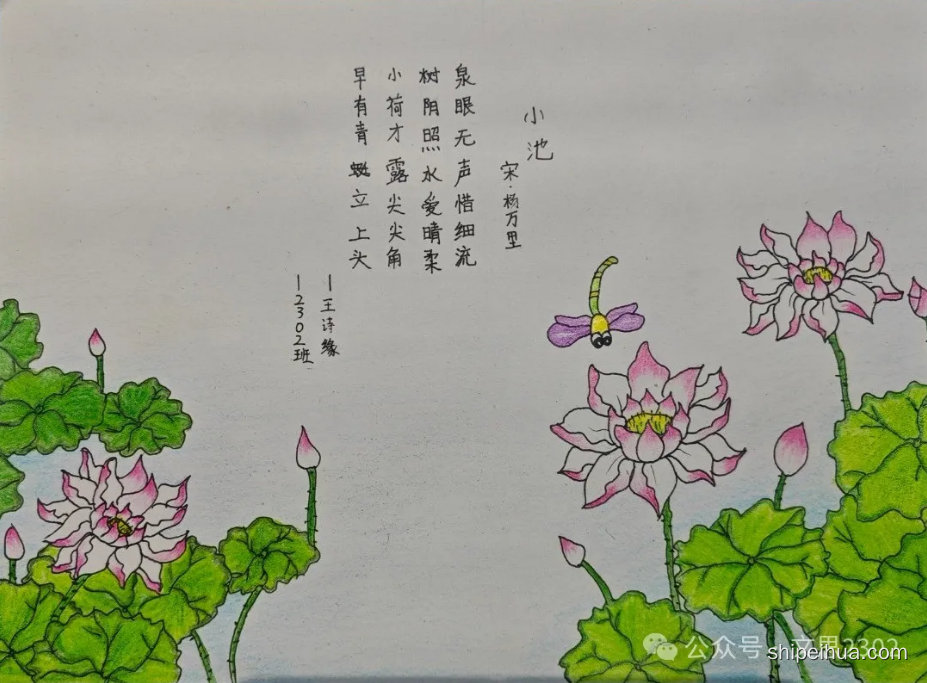 小池
宋·杨万里
泉眼无声惜细流
树阴照水爱晴柔
小荷才露尖尖角
早有青蜓立上头
一王诗缘
12302班
公众号·文思2302
shipeihua.com